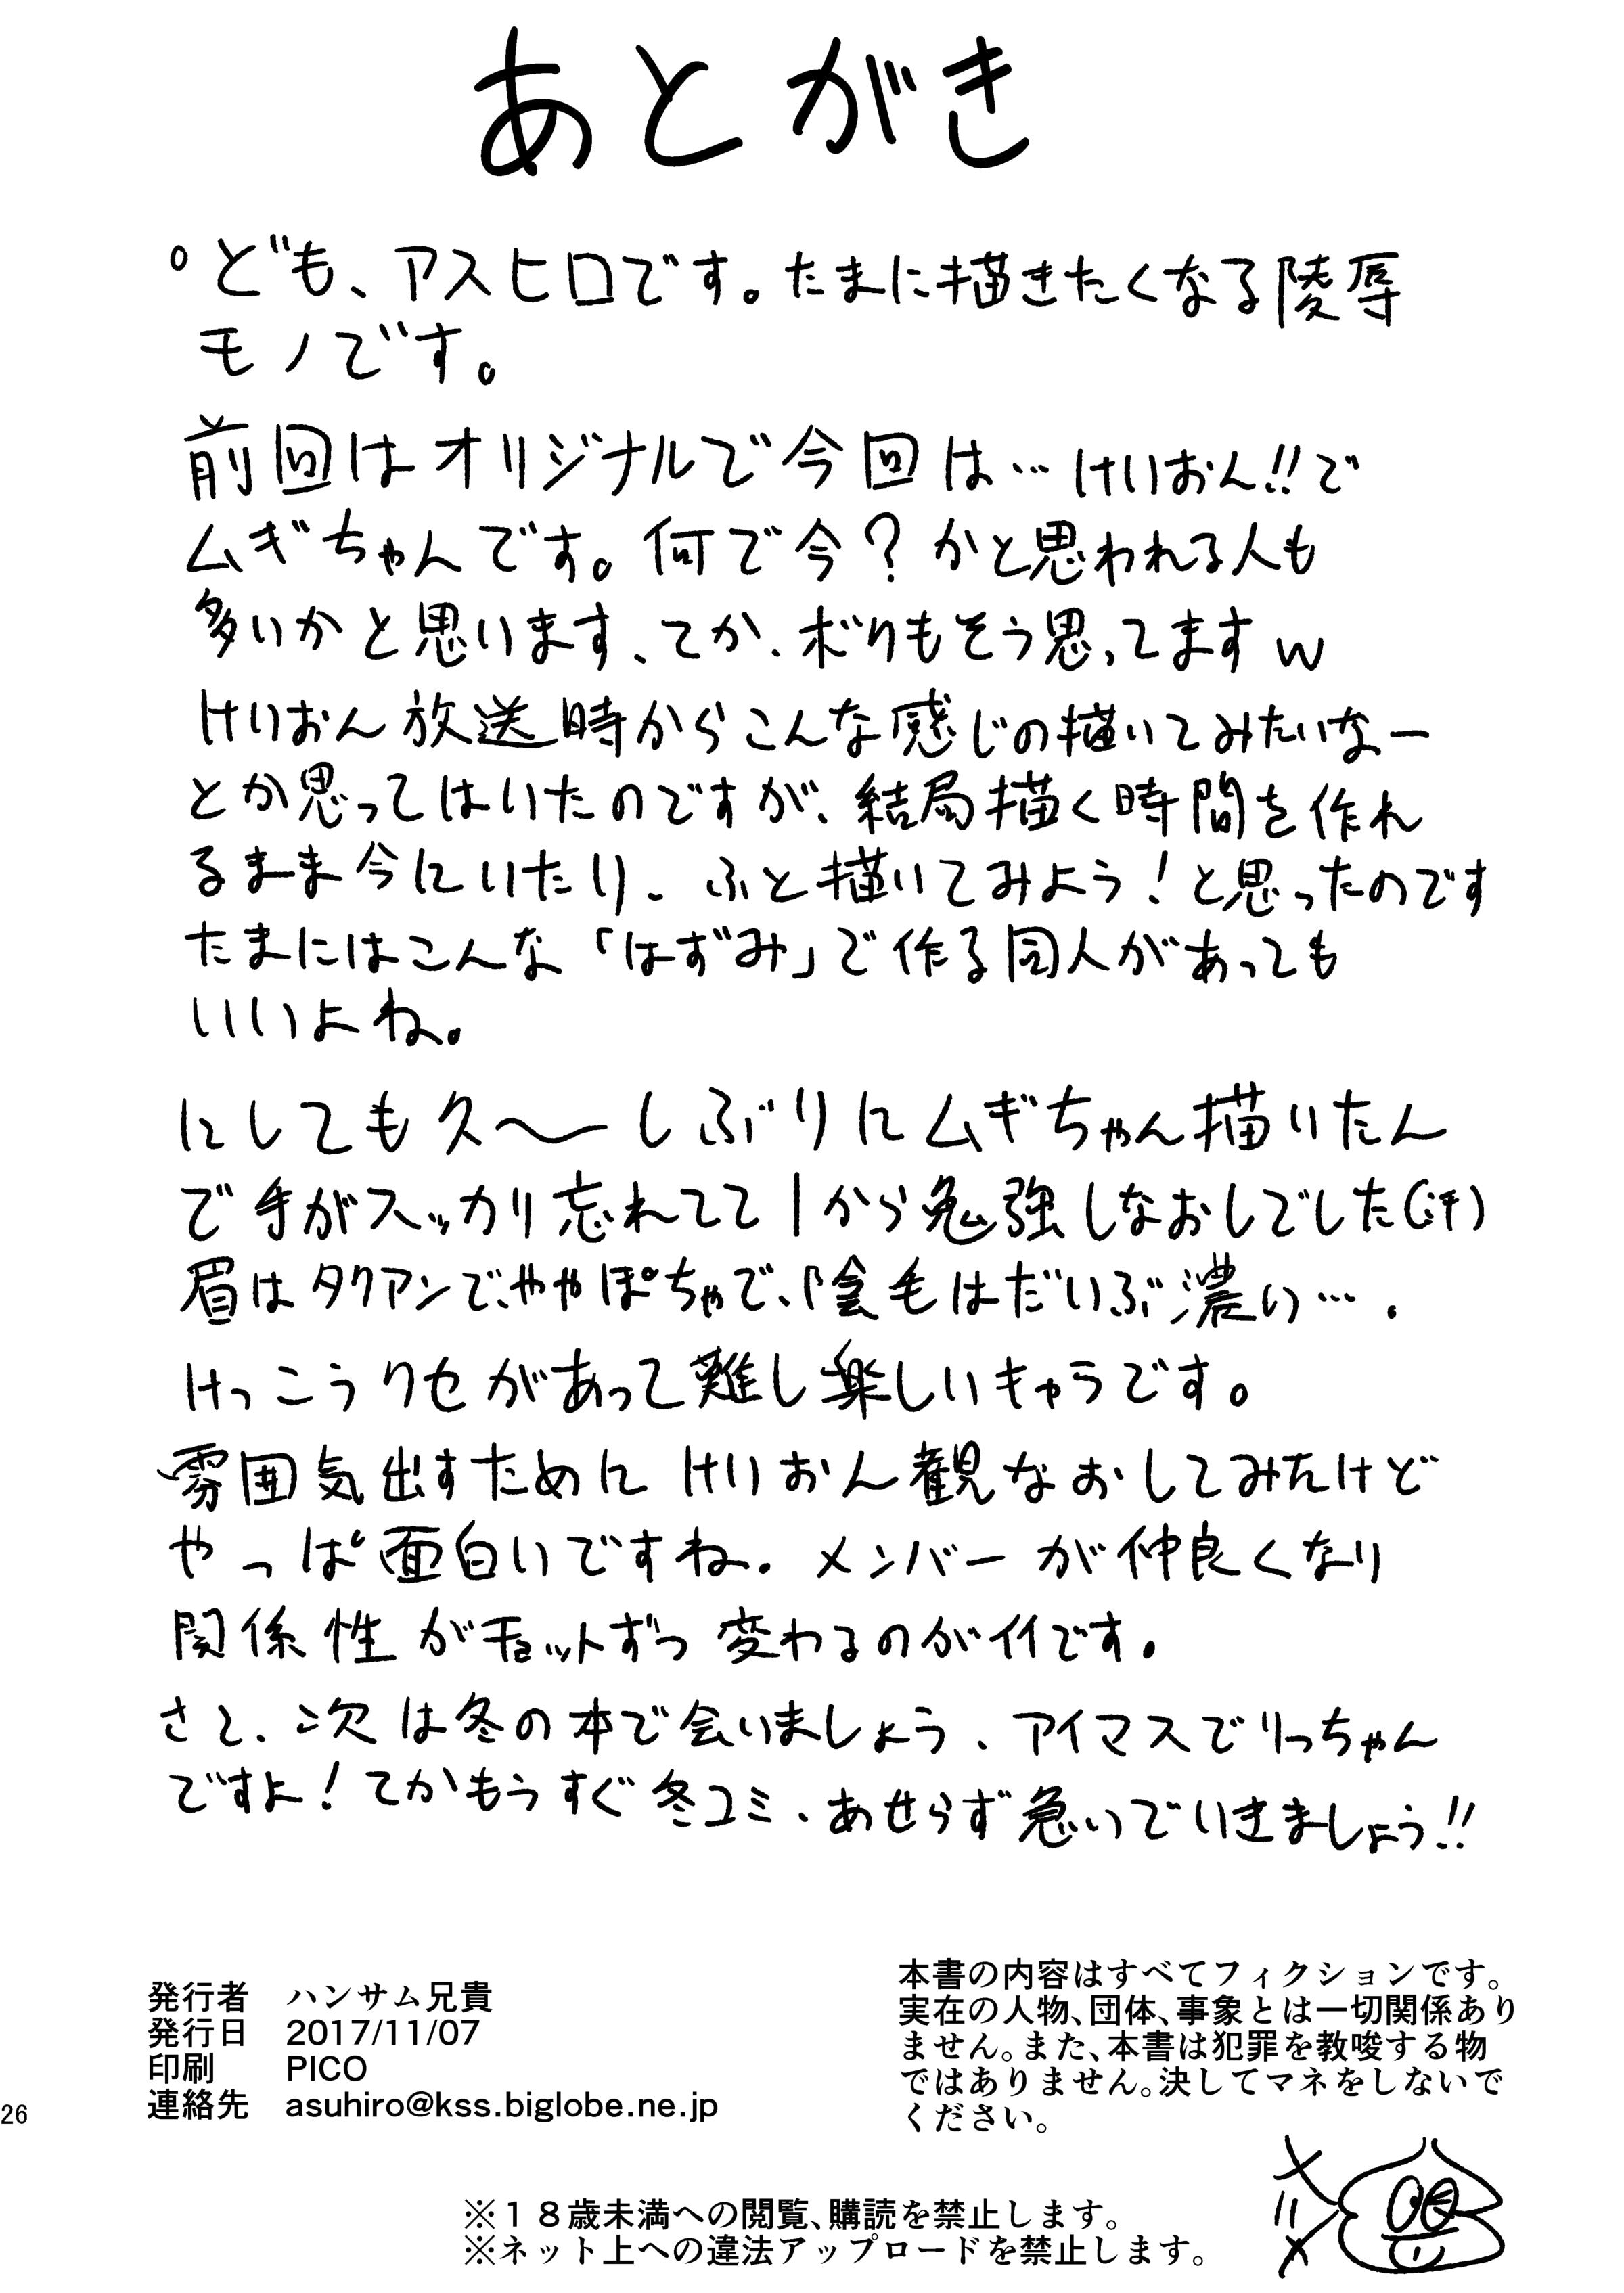 あとがき
°ども、アスヒロです。たまに描きたくなる陵辱
モノです。
前回はオリジナルで今回は…けいおん!!で
ムギちゃんです。何で今？かと思われる人も
多いかと思います、てか、ボクもそう思ってますw
けいおん放送時からこんな感じの描いてみたいなー
とか思ってはいたのですが、結局描く時間を作れ
るまま今にいたり、ふと描いてみよう！と思ったのです
たまにはこんな「はずみ」で作る同人があっても
いいよね。
にしても久〜しぶりにムギちゃん描いたん
で手がスッカリ忘れてて1から勉強しなおしでした(汗)
眉はタクアンで、ややぽちゃで、陰毛はだいぶ濃い…．
けっこうクセがあって難し楽しいキャラです。
雰囲気出すために けいおん観なおしてみたけど
やっぱ面白いですね。メンバーが仲良くなり
関係性がチョットずつ変わるのがイイです。
さて、次は冬の本で会いましょう、アイマスでりっちゃん
ですよ！てかもうすぐ冬コミ、あせらず急いでいきましょう!!
発行者 ハンサム兄貴
発行日 2017/11/07
印刷 PICO
連絡先 asuhiro@kss.biglobe.ne.jp
本書の内容はすべてフィクションです。
実在の人物、団体、事象とは一切関係あり
ません。また、本書は犯罪を教唆する物
ではありません。決してマネをしないで
ください。
26
※１８歳未満への閲覧、購読を禁止します。
※ネット上への違法アップロードを禁止します。